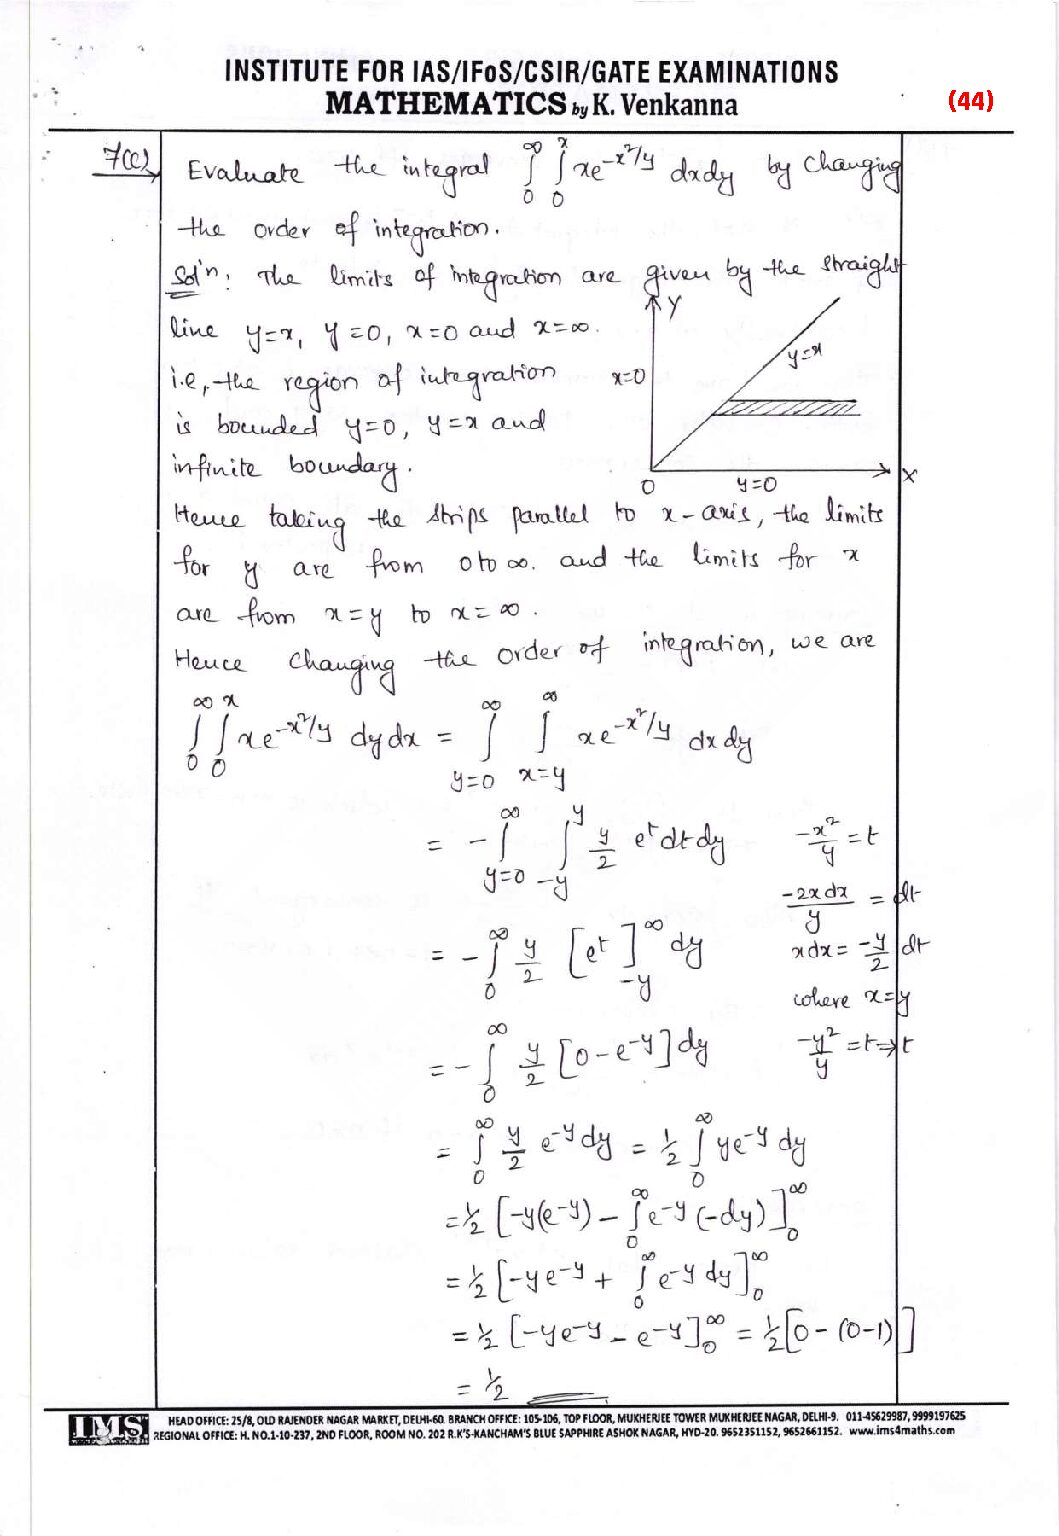 INSTITUTE FOR IAS/IFoS/CSIR/GATE EXAMINATIONS
MATHEMATICS by K. Venkanna
(44)
7(c)
Evaluate the integral ∫₀^∞ ∫₀^x xe^{-x²/y} dxdy by changing
the order of integration.
Sol'n: The limits of integration are given by the straight
line y=x, y=0, x=0 and x=∞.
i.e, the region of integration
is bounded y=0, y=x and
infinite boundary.
Y
y=x
x=0
X
O y=0
Hence taking the strips parallel to x-axis, the limits
for y are from 0 to ∞. and the limits for x
are from x=y to x=∞.
Hence changing the order of integration, we are
∫₀^∞ ∫₀^x xe^{-x²/y} dydx = ∫_{y=0}^∞ ∫_{x=y}^∞ xe^{-x²/y} dxdy
= -∫_{y=0}^∞ ∫_{-y}^y y/2 e^t dt dy
-x²/y = t
-2xdx/y = dt
= -∫₀^∞ y/2 [e^t]_{-y}^∞ dy
xdx = -y/2 dt
where x=y
= -∫₀^∞ y/2 [0-e^{-y}] dy
-y²/y = t ⇒ t
= ∫₀^∞ y/2 e^{-y} dy = 1/2 ∫₀^∞ ye^{-y} dy
= 1/2 [-y(e^{-y}) - ∫₀^∞ e^{-y} (-dy)]₀^∞
= 1/2 [-ye^{-y} + ∫₀^∞ e^{-y} dy]₀^∞
= 1/2 [-ye^{-y} - e^{-y}]₀^∞ = 1/2 [0-(0-1)]
= 1/2
IMS
HEAD OFFICE: 25/8, OLD RAJENDER NAGAR MARKET, DELHI-60. BRANCH OFFICE: 105-106, TOP FLOOR, MUKHERJEE TOWER MUKHERJEE NAGAR, DELHI-9. 011-45629987, 9999197625
REGIONAL OFFICE: H. NO.1-10-237, 2ND FLOOR, ROOM NO. 202 R.K'S-KANCHAM'S BLUE SAPPHIRE ASHOK NAGAR, HYD-20. 9652351152, 9652661152. www.ims4maths.com